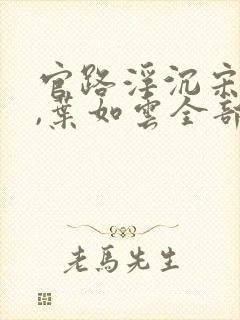 官路淫沉宋
,葉如雲全部
老馬先生